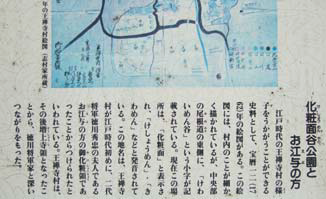 年の王禅寺村絵図（志村家所蔵）
化粧面谷公園と
お江与の方
江戸時代の王禅寺村の様
子をうかがうことができる
史料として、宝暦十二（一七
62）年の絵図がある。この絵
図には、村内のことが細か
く描かれているが、中央部
の尾根道の東側に、「けわ
いめん谷」という小字が記
載されている。現在この場
所は、「化粧面」と表示さ
れ、「けしょうめん」、「き
わめん」などと発音されて
いる。この地名は、王禅寺
村が江戸時代初めに、二代
将軍徳川秀忠の夫人である
お江与の方の御化粧領であ
ったことからつけられたと
いわれている。王禅寺村は、
その後増上寺領となったこ
とから、徳川将軍家と深い
つながりをもった。